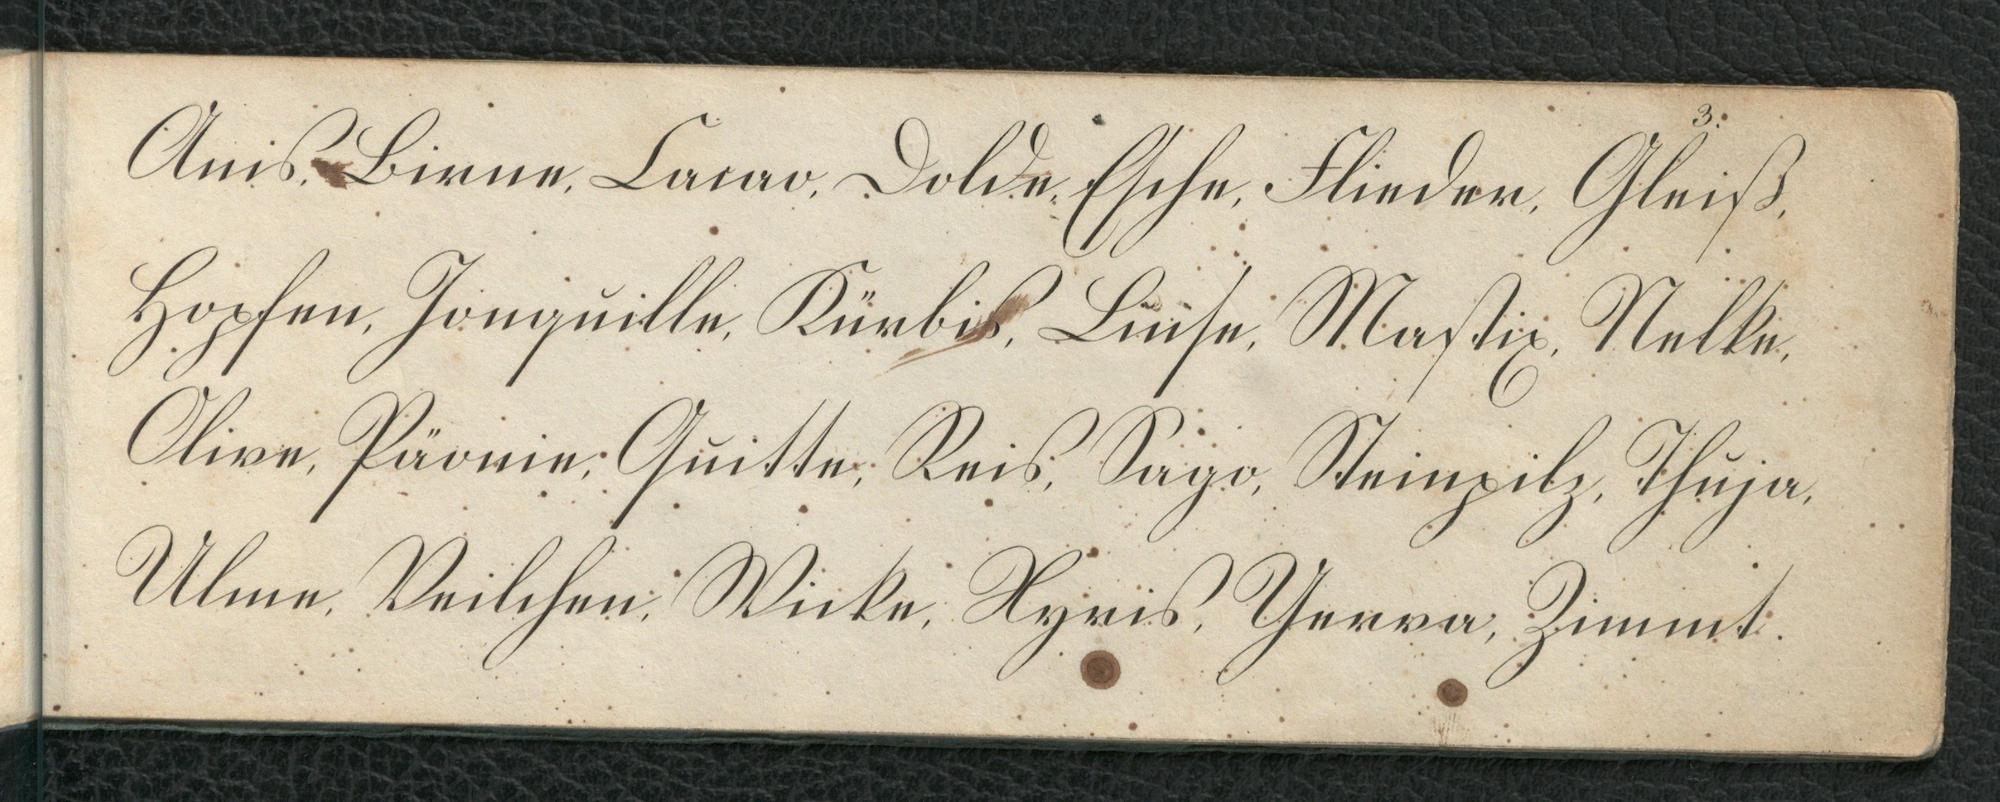 3.
Anis, Birne, Cacao, Dolde, Esche, Flieder, Gleiß,
Hopfen, Jonquille, Kürbis, Linse, Mastix, Nelke,
Olive, Päonie, Quitte, Reis, Sago, Steinpilz, Thuja,
Ulme, Veilchen, Wicke, Xyris, Yerva, Zimmt.